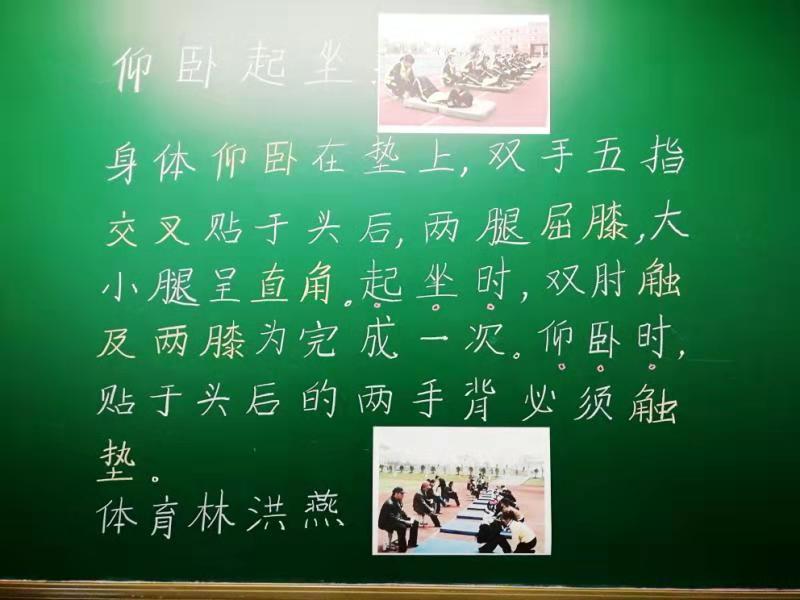 仰卧起坐
身体仰卧在垫上,双手五指
交叉贴于头后,两腿屈膝,大
小腿呈直角。起坐时,双肘触
及两膝为完成一次。仰卧时,
贴于头后的两手背必须触
垫。
体育林洪燕